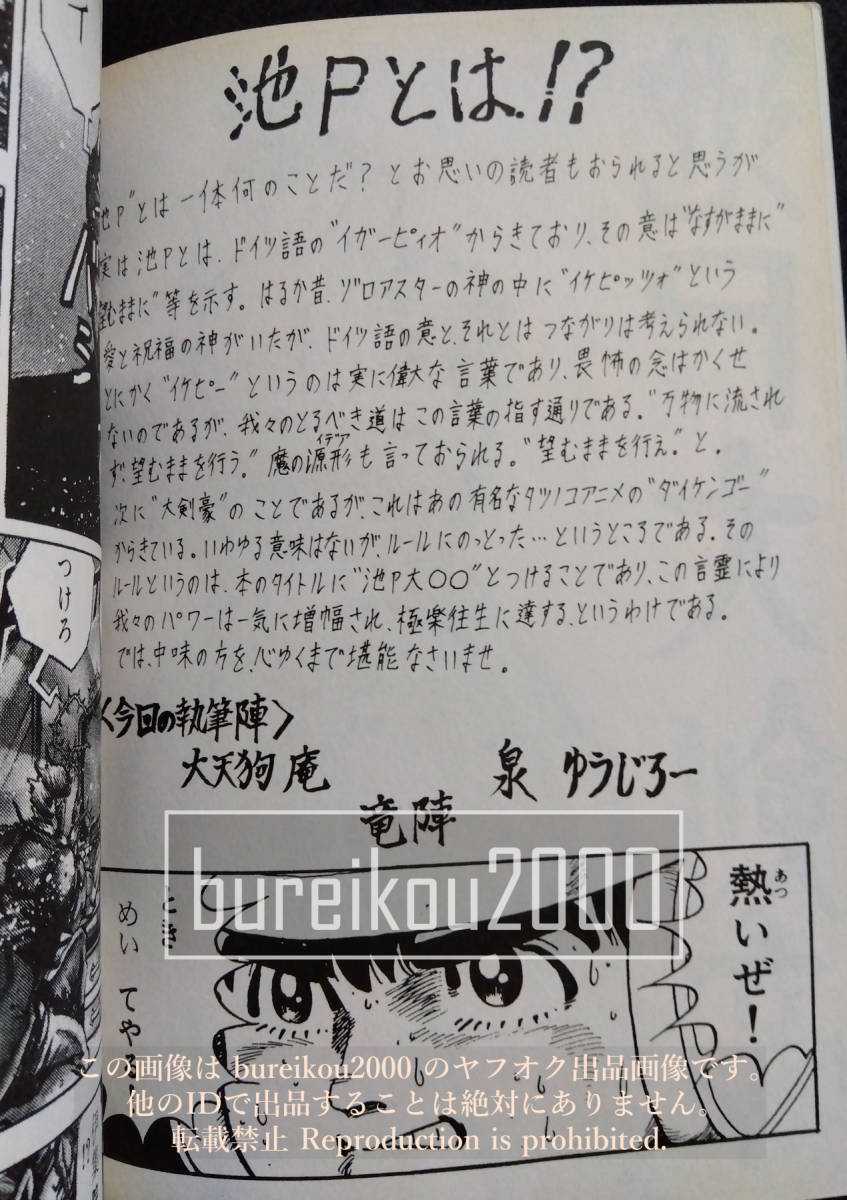 池Pとは!?
池P"とは一体何のことだ?とお思いの読者もおられると思うが
実は池Pとは、ドイツ語の"イガーピィオ"からきており、その意は"なすがままに"
望むままに"等を示す。はるか昔、ゾロアスターの神の中に"イケピッツォ"という
愛と祝福の神がいたが、ドイツ語の意と、それとはつながりは考えられない。
とにかく"イケピー"というのは実に偉大な言葉であり、畏怖の念はかくせ
ないのであるが、我々のとるべき道はこの言葉の指す通りである。"万物に流され
ず、望むままを行う。"魔の源形も言っておられる。"望むままを行え。"と。
イデア
次に"大剣豪"のことであるが、これはあの有名なタツノコアニメの"ダイケンゴー"
からきている。いわゆる意味はないが、ルールにのっとった…というところである。その
ルールというのは、本のタイトルに"池P大〇〇"とつけることであり、この言霊により
我々のパワーは一気に増幅され、極楽往生に達する、というわけである。
では、中味の方を、心ゆくまで堪能なさいませ。
<今回の執筆陣>
大天狗庵 泉ゆうじろー
竜陣
熱いぜ!
あつ
とき
めい てやる
つけろ
bureikou2000
この画像は bureikou2000 のヤフオク出品画像です。
他のIDで出品することは絶対にありません。
転載禁止 Reproduction is prohibited.